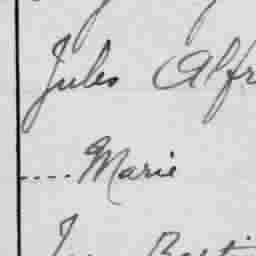 Jules Alfr
.... Marie